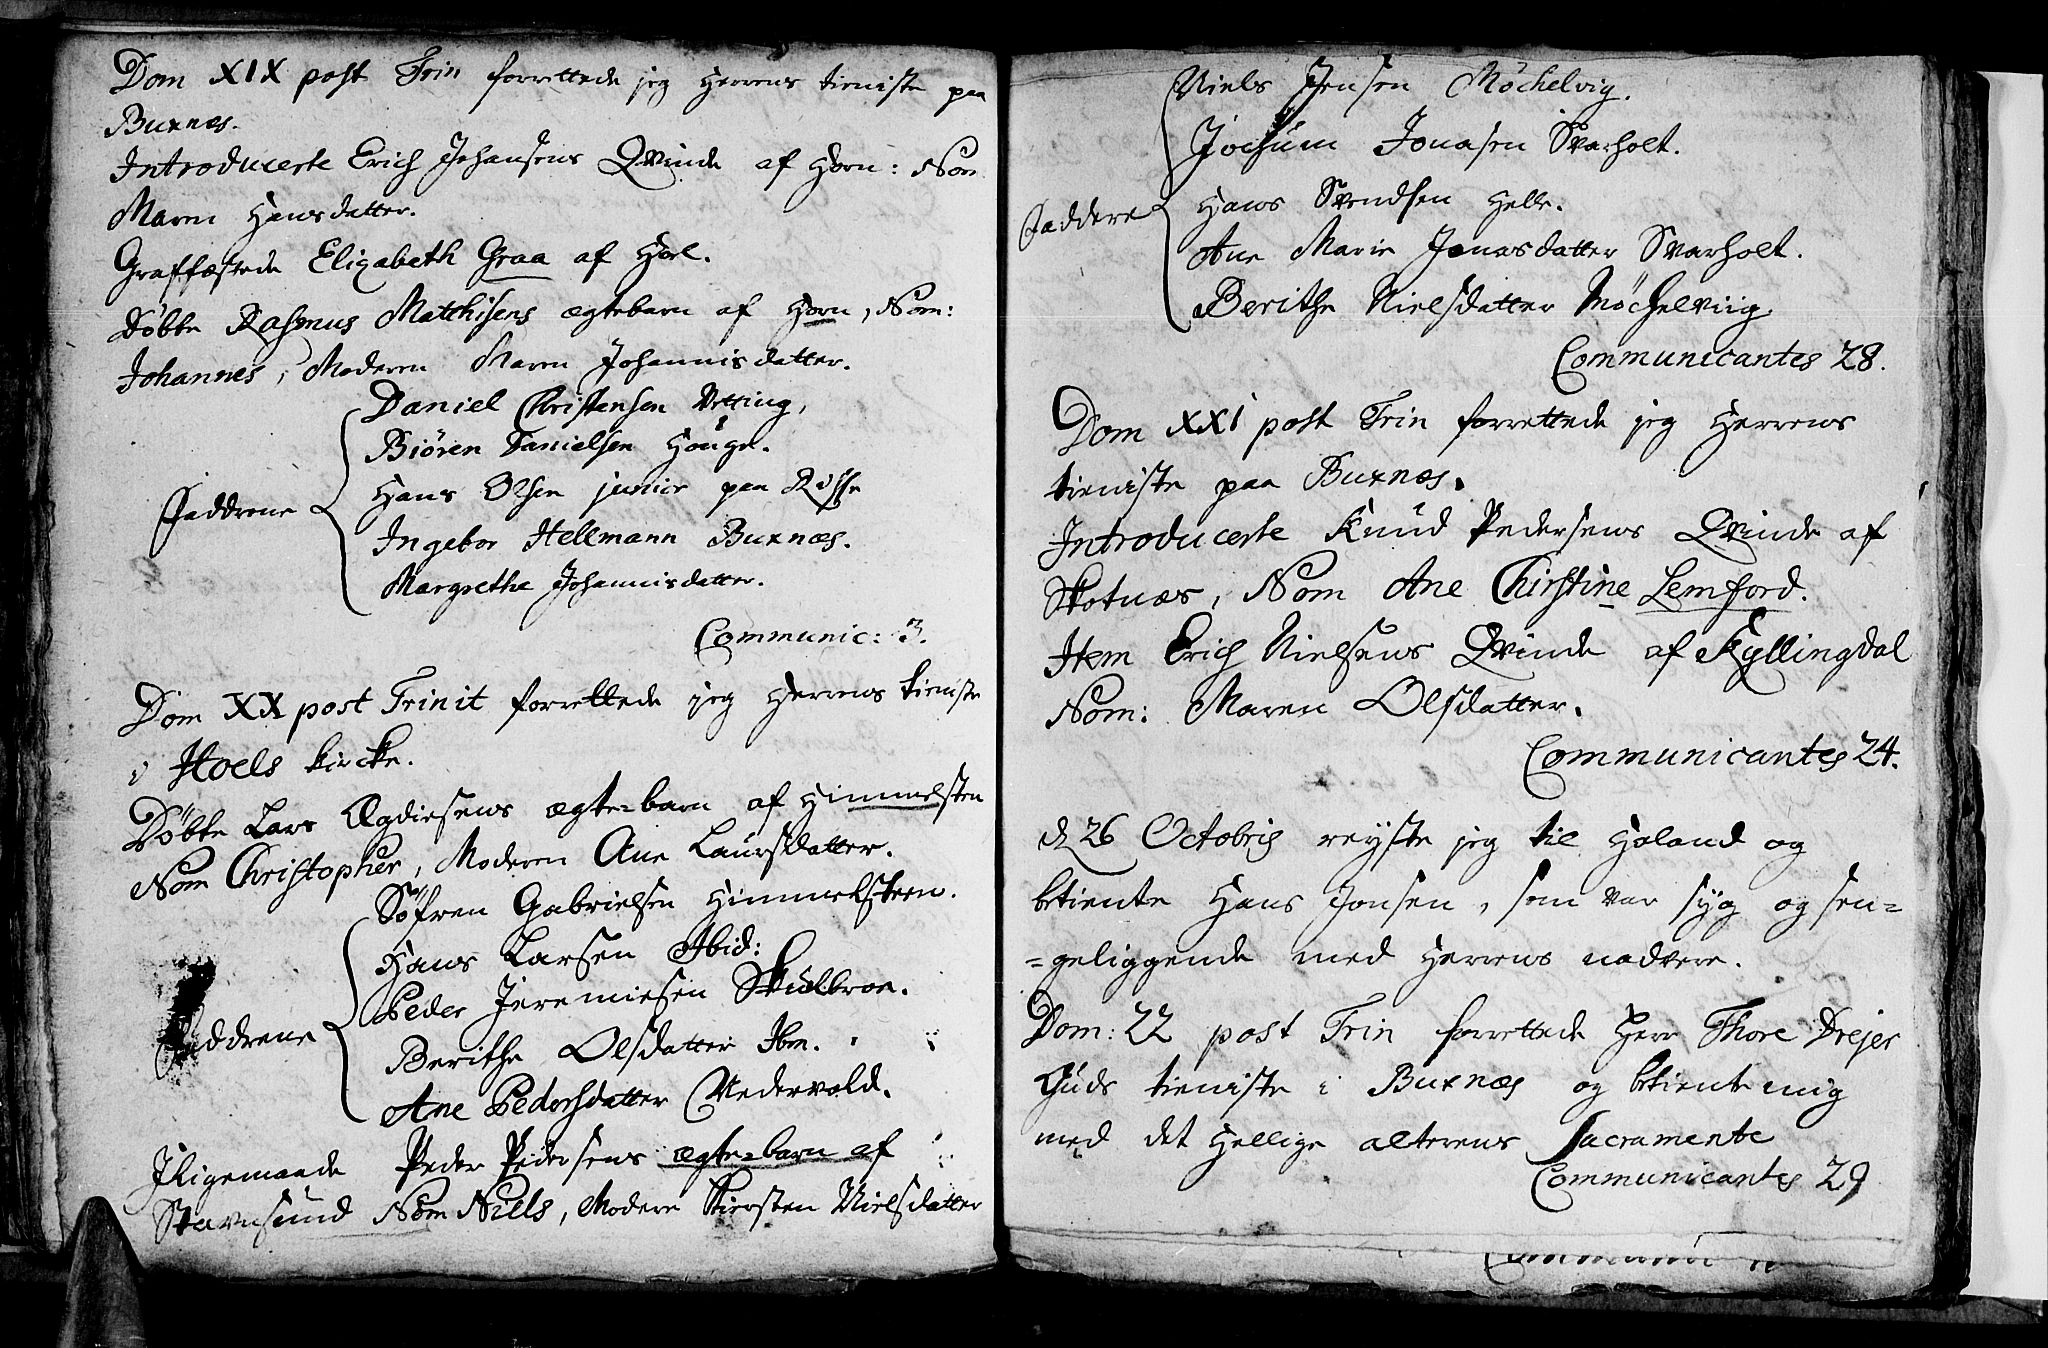 Dom XIX post Trin forrettede jeg Herrens tieniste paa
Buxnæs.
Introducerte Erich Johansens Qvinde af Horn: Nom
Maren Hansdatter.
Graffæstede Elizabeth Graa af Hoel.
Døbte Rasmus Matthisens ægtebarn af Horn, Nom:
Johannes, Moderen Maren Johannisdatter.
Daniel Christensen Vetting,
Biören Danielsen Houge.
Hans Olsen junior paa Risse
Faddrene
Ingebor Hellmann Buxnæs.
Margrethe Johannisdatter.
Communic: 3.
Dom XX post Trinit forrettede jeg Herrens tieniste
i Hoels kircke.
Døbte Lars Ægdiesens ægte=barn af Himmelsten
Nom Christopher, Moderen Ane Laursdatter.
Söfren Gabrielsen Himmelsteen.
Hans Larsen Ibid:
Peder Jeremiesen Skulbroe.
Faddrene
Berithe Olsdatter Ibm.
Ane Pedersdatter Vedervold.
Iligemaade Peder Pedersens ægte=barn af
Stavnsund Nom Nills, Modere Kiersten Nielsdatter
Niels Jensen Möchelvig.
Jochum Jonasen Svarholt.
Faddere
Hans Svendsen Helle.
Ane Marie Jonasdatter Svarholt.
Berithe Nielsdatter Möchelviig.
Communicantes 28.
Dom XXI post Trin forrettede jeg Herrens
tieniste paa Buxnæs.
Introducerte Knud Pedersens Qvinde af
Skotnæs, Nom Ane Chirstine Lemford.
Item Erich Nielsens Qvinde af Kyllingdal
Nom: Maren Olsdatter.
Communicantes 24.
d 26 Octobris reyste jeg til Holand og
betiente Hans Jonsen, som var syg og sen=
=geliggende med Herrens nadvere.
Dom: 22 post Trin forrettede Herr Thore Drejer
Guds tieniste i Buxnæs og betiente mig
med det Hellige alterens Sacramente
Communicantes 29